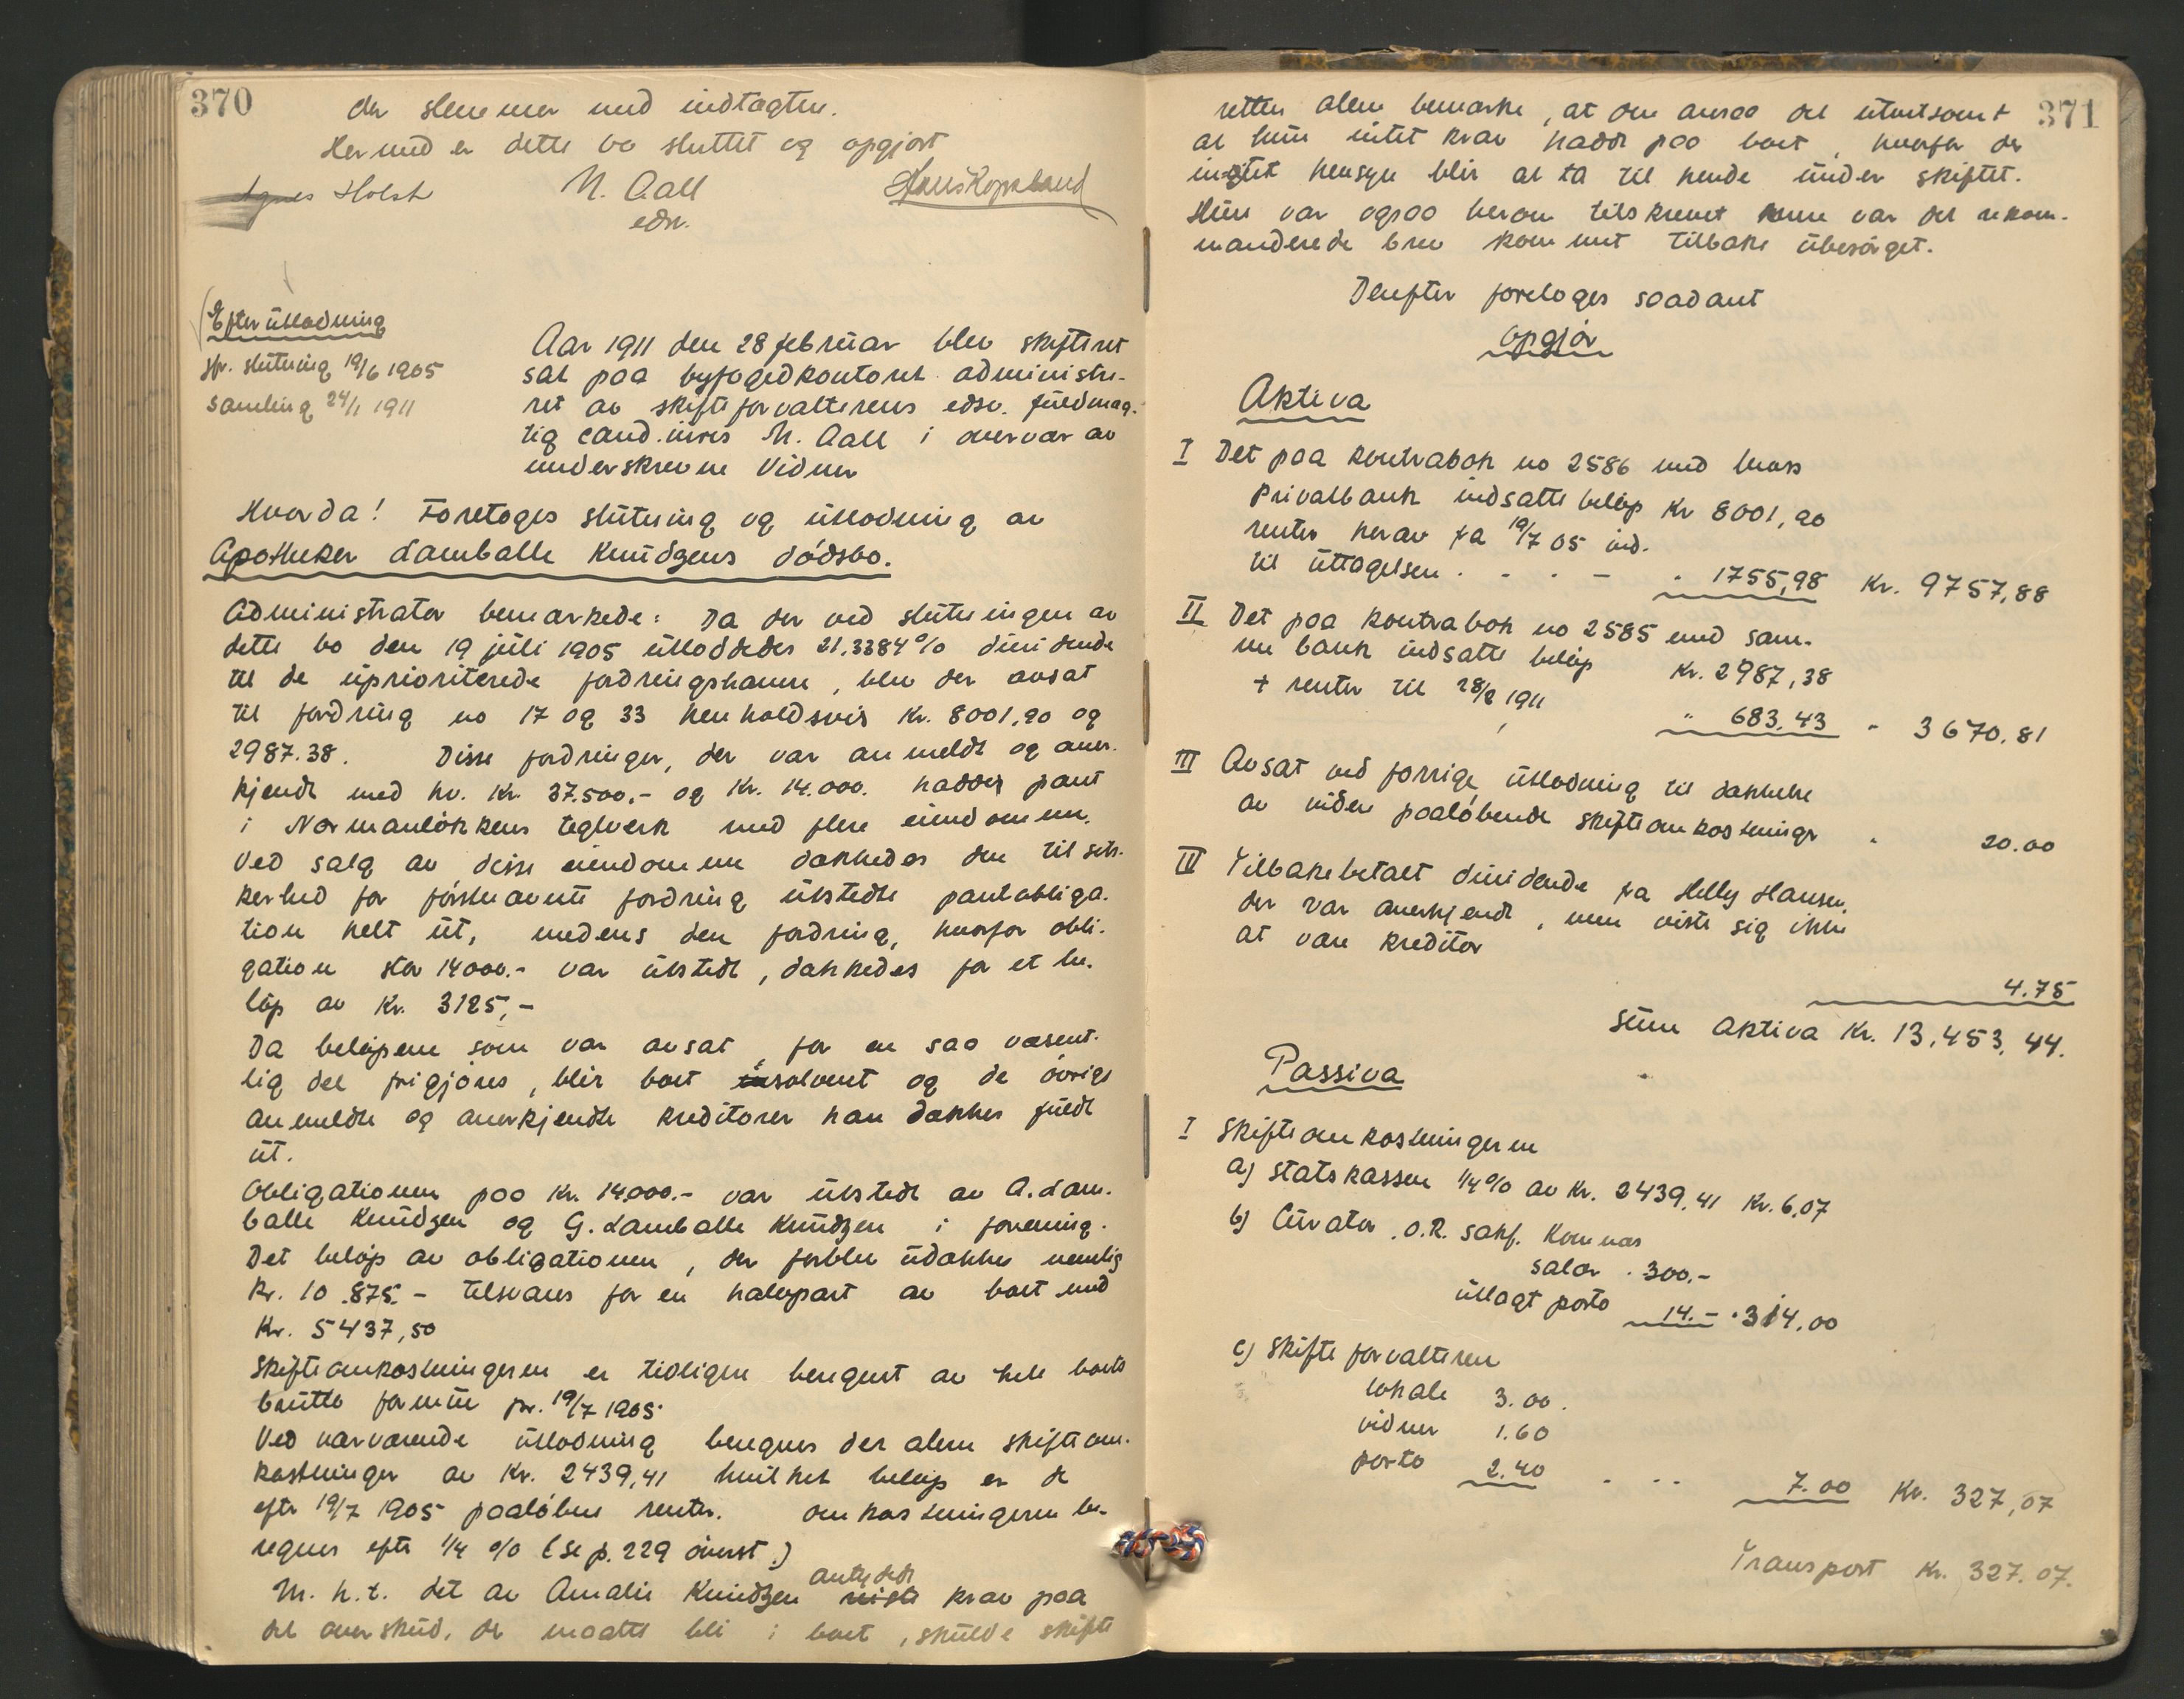 370
der stemmer med indtægten.
Hermed er dette bo sluttet og opgjort
Agnes Holst N. Aall Hans Kopsland
edsv.
Efterutlodning
sfr. slutning 19/6 1905
samling 24/1 1911
Aar 1911 den 28 februar blev skifteret
sat paa byfogedkontoret administre-
ret av skifteforvalterens edsv. fuldmæg-
tig cand. juris N. Aall i overvær av
underskrevne vidner
Hvorda! Foretoges slutning og utlodning av
Apotheker Lamballe Knudzens dödsbo.
Administrator bemærkede: Da der ved slutningen av
dette bo den 19 juli 1905 utloddedes 21.3384 % dividende
til de uprioriterede fordringshavere, blev der avsat
til fordring no 17 og 33 henholdsvis kr. 8001,90 og
2987.38. Disse fordringer, der var anmeldt og aner-
kjendt med hv. kr. 37.500.- og kr. 14.000. hadde pant
i Normanlökkens teglverk med flere eiendomme.
Ved salg av disse eiendomme dækkedes den til sik-
kerhed for förstnævnte fordring utstedte pantobliga-
tion helt ut, medens den fordring, hvorfor obli-
gation stor 14000.- var utstedt, dækkedes for et be-
löp av kr. 3125,-
Da belöpene som var avsat, for en saa væsent-
lig del frigjöres, blir boet insolvent og de övrige
anmeldte og anerkjendte kreditorer kan dækkes fuldt
ut.
Obligationen paa kr. 14.000.- var utstedt av A. Lam-
balle Knudzen og G. Lamballe Knudzen i forening.
Det belöp av obligationen, der forblev udækket nemlig
kr. 10.875.- tilsvares for en halvpart av boet med
kr. 5437,50
Skifteomkostningerne er tidligere beregnet av hele boets
brutto formue pr. 19/7 1905.
Ved nærværende utlodning beregnes der alene skifteom-
kostninger av kr. 2439,41 hvilket belöp er de
efter 19/7 1905 paalöbne renter. Omkostningerne be-
regnes efter 1/4 % (se p. 229 överst.)
M. h. t. det av Amalie Knudzen antydede reiste krav paa
det overskud, der maatte bli i boet, skulde skifte
371
retten alene bemærke, at den ansaa det utvilsomt
at hun intet krav hadde paa boet, hvorfor der
intet hensyn blir at ta til hende under skiftet.
Hun var ogsaa herom tilskrevet men var det rekom-
manderede brev kommet tilbake ubesörget.
Derefter foretoges saadant
opgjör
Aktiva
I Det paa kontrabok no 2586 med Moss
Privatbank indsatte belöp Kr 8001,90
renter herav fra 19/7 05 ind-
til uttagelsen . . . - . 1755,98 Kr. 9757,88
II Det paa kontrabok no 2585 med sam-
me bank indsatte belöp Kr. 2987,38
+ renter til 28/2 1911 " 683.43 - 3670.81
III Avsat ved forrige utlodning til dækkelse
av videre paalöbende skifteomkostninger . 20.00
IV Tilbakebetalt dividende fra Helly Hansen,
der var anerkjendt, men viste sig ikke
at være kreditor
4.75
Sum aktiva Kr. 13.453.44.
Passiva
I Skifteomkostningerne
a) Statskassen 1/4 % av kr. 2439.41 Kr. 6,07
b) Curator, O.R. sakf. Komnæs
salær . 300.-
utlagt porto 14.- . 314.00
c) Skifteforvalteren
lokale 3.00.
vidner 1.60
porto 2.40 . . . 7.00 Kr. 327,07
Transport Kr. 327.07.